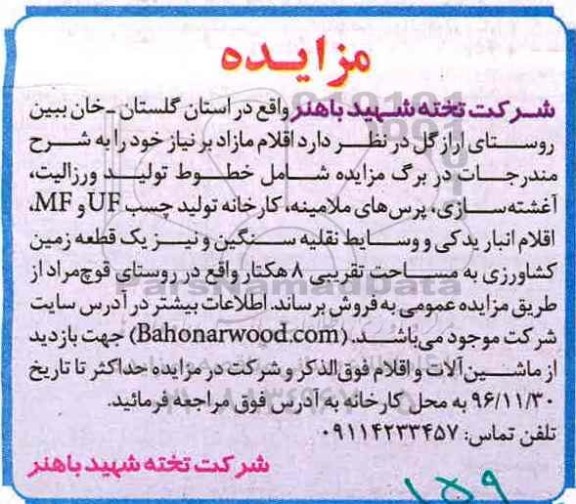 مزایده
شرکت تخته شهید باهنر واقع در استان گلستان - خان ببین
روستای ارازگل در نظر دارد اقلام مازاد بر نیاز خود را به شرح
مندرجات در برگ مزایده شامل خطوط تولید ورزالیت،
آغشته‌سازی، پرس‌های ملامینه، کارخانه تولید چسب UF و MF،
اقلام انبار یدکی و وسایط نقلیه سنگین و نیز یک قطعه زمین
کشاورزی به مساحت تقریبی ۸ هکتار واقع در روستای قوچ‌مراد از
طریق مزایده عمومی به فروش برساند. اطلاعات بیشتر در آدرس سایت
شرکت موجود می‌باشد. (Bahonarwood.com) جهت بازدید
از ماشین‌آلات و اقلام فوق‌الذکر و شرکت در مزایده حداکثر تا تاریخ
۹۶/۱۱/۳۰ به محل کارخانه به آدرس فوق مراجعه فرمائید.
تلفن تماس: ۰۹۱۱۴۲۳۳۴۵۷
شرکت تخته شهید باهنر
۱۵۹
ParsNamadData